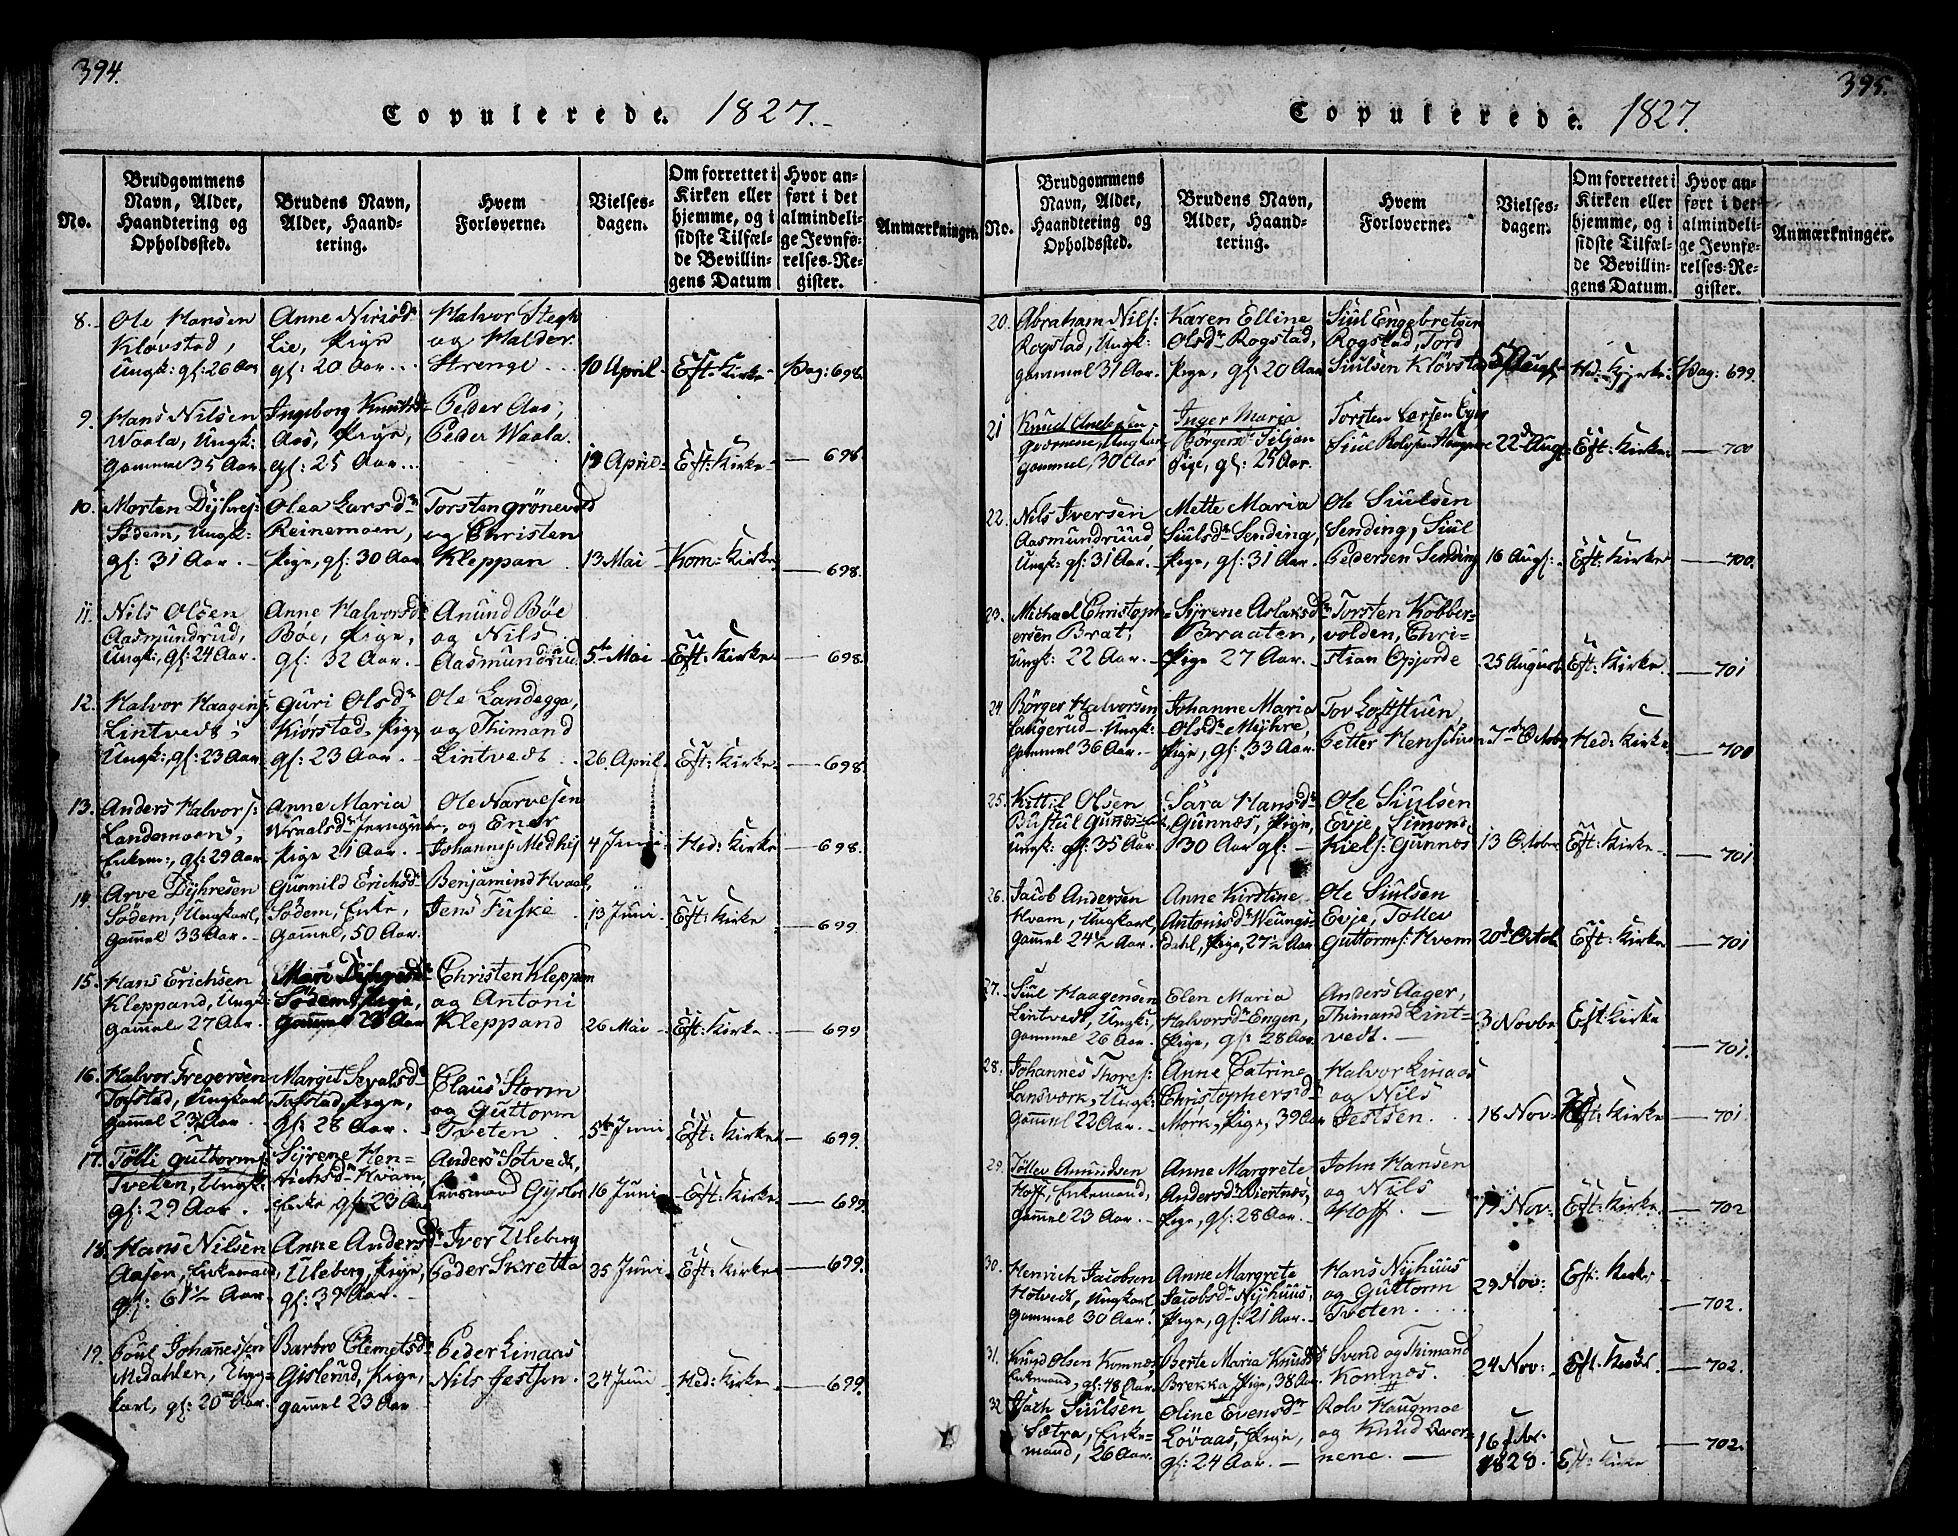 394.
Copulerede. 1827.
No.
Brudgommens
Navn, Alder,
Haandtering og
Opholdssted.
Brudens Navn,
Alder, Haand-
tering.
Hvem
Forloverne.
Vielses-
dagen.
Om forrettet i
Kirken eller
hjemme, og i
sidste Tilfæl-
de Bevillin-
gens Datum
Hvor an-
ført i det
almindeli-
ge Jevnfø-
relses-Re-
gister.
Anmærkninger.
8. Ole Hansen
Klovstad,
Ungk: gl: 26 Aar
Anne
Lie, Pige
gl: 20 Aar
Halvor
og Halder
Strenge
10 April Eft: Kirke Pag: 698.
9. Hans Nilsen
Waala, Ungk:
Gammel 35 Aar
Ingeborg Knutsd
Aas, Pige,
gl: 25 Aar
Peder Aas,
Peder Waala.
19 April Eft: Kirke 698
10. Morten
Sødem, Ungk:
gl: 31 Aar.
Olea Larsd
Reinemoen,
Pige, gl: 30 Aar
Torsten Grönevold
og Christen
Kleppan
13 Mai Kom: Kirke 698.
11. Nils Olsen
Aasmundrud,
Ungk:, gl: 24 Aar.
Anne Halvorsd
Böe, Pige,
gl: 32 Aar.
Anund Böe
og Nils
Aasmundrud
5te Mai Eft: Kirke 698.
12. Halvor Haagens
Lintvedt,
Ungk:, gl: 23 Aar
Guri Olsd
Kiörstad, Pige
gl: 23 Aar.
Ole Landegga,
og Thimand
Lintvedt
26 April Eft: Kirke 698.
13. Anders Halvors:
Landemoen,
Enkem:, gl: 29 Aar
Anne Maria
Pige 21 Aar.
Ole Narvesen
og Ener
Johannes:
4 Juni Hed: Kirke 698.
14. Arve Dyhresen
Södem, Ungkarl,
Gamel 33 Aar.
Gunnild Erichsd
Södem, Enke,
Gamel, 50 Aar.
Benjamind Hvaal,
Jens Fuske
13 Juni Eft: Kirke 699
15. Hans Erichsen
Kleppand, Ungk:
Gamel 27 Aar.
Mari
Södem, Pige,
Gammel 28 Aar
Christen Kleppen
og Antoni
Kleppand
26 Mai Eft: Kirke 699
16. Halvor Gregersen
Tofstad, Ungkarl,
Gamel 23 Aar
Margit
Tofstad, Pige,
gl: 28 Aar.
Claus Storm
og Guttorm
Tveten
5te Juni Eft: Kirke 699.
17. Tölli Guttorms:
Tveten, Ungk:
gl: 29 Aar.
Syrene Hen-
richsd Kvam,
Enke, gl: 23 Aar
Anders Sotvedt,
16 Juni Eft: Kirke 699.
18. Hans Nilsen
Aasen, Enkemand,
gl: 61½ Aar.
Anne Andersd
Uleberg, Pige,
gl: 39 Aar.
Iver Uleberg
Peder Skretta
35 Juni Eft: Kirke 699.
19. Poul Johannessen
Medahlen, Ung-
karl, gl: 20 Aar.
Barbro Clemetsd
Gislerud, Pige,
gamel 23 Aar
Peder Linaas
Nils Jestsen.
24 Juni Hed: Kirke 699.
395.
Copulerede. 1827.
No.
Brudgommens
Navn, Alder,
Haandtering og
Opholdssted.
Brudens Navn,
Alder, Haand-
tering.
Hvem
Forloverne.
Vielses-
dagen.
Om forrettet i
Kirken eller
hjemme, og i
sidste Tilfæl-
de Bevillin-
gens Datum.
Hvor an-
ført i det
almindeli-
ge Jevnfø-
relses-Re-
gister.
Anmærkninger.
20. Abraham Nils:
Rogstad, Ungk:
gammel 31 Aar.
Karen Elline
Olsd Rogstad,
Pige, gl: 20 Aar
Siul Engebretsen
Rogstad, Tord
Siulsen Klövstad
Hed: Kirke Pag: 699.
21 Knud
Gammel, 30 Aar
Inger Maria
Börgersd Siljan
Pige, gl: 25 Aar.
Torsten Larsen
Siul
22d Aug: Eft: Kirke 700
22. Nils Iversen
Aasmundrund,
Ungk: gl: 31 Aar.
Mette Maria
Siulsd Sending,
Pige, gl: 31 Aar.
Ole Siulsen
Sending, Siul
Pedersen Sending
16 Aug: Eft: Kirke 700.
23. Michael Christoph-
ersen Brat,
Ungk: 22 Aar.
Syrene Aslaksd
Braaten,
Pige 27 Aar.
Torsten Kobber-
volden, Chri-
stian Opjorde
25 August Eft: Kirke 701
24. Börger Halvorsen
Laugerud, Ungk:
Gammel 36 Aar.
Johanne Maria
Olsd Myhre,
Pige, gl: 33 Aar
Tov Loftstuen,
Petter
Octob Hed: Kirke 700
25. Kittil Olsen
Ungk: gl: 35 Aar
Sara Hansd
Gunnæs, Pige,
30 Aar gl:
Ole Siulsen
Evje, Simond
Kiels: Gunnæs
13 Octobr Eft: Kirke 701
26. Jacob Andersen
Hvam, Ungkarl,
Gamel 24½ Aar.
Anne Kirstine
Antonisd Weungs-
dahl, Pige, 27½ Aar
Ole Siulsen
Evje, Tollev
Guttorms: Hvam
20d Octob Eft: Kirke 701
27. Siul Haagensen
Lintvedt, Ungk:,
Gammel 26 Aar.
Elen Maria
Halvorsd Engen,
Pige, gl: 28 Aar.
Anders Aager,
Thimand Lint-
vedt.
3 Novbr Eft: Kirke 701.
28. Johannes Thores:
Lansværk, Ungk:
Gamel 22 Aar.
Anne Catrine
Christophersd
Mörk, Pige, 39 Aar
Halvor Linaas
og Nils
Jestsen.
18 Nov: Eft: Kirke 701
29. Tollev Amundsen
Hoff, Enkemand,
Gamel 23 Aar.
Anne Margrete
Andersd Biertnæs,
Pige, gl: 28 Aar.
John Hansen
og Nils
Hoff.
19 Nov: Eft: Kirke 702
30. Henrich Jacobsen
Hotvedt, Ungkarl,
Gammel 30 Aar.
Anne Margrete
Jacobsd Nyhuus,
Pige, gl: 21 Aar.
Hans Nyhuus
og Guttorm
Tveten.
29 Nov: Eft: Kirke 702.
31. Knud Olsen Komnæs,
Enkemand, gl: 48 Aar.
Berte Maria Knudsd
Brekka, Pige, 38 Aar
Svend og Thimand
Komnæs.
24 Nov: Eft: Kirke 702.
32 Siulsen
Sætra, Enke-
mand, 26 Aar.
Oline Evensd
Lövaas, Pige,
gl: 24 Aar.
Rolv Haugmoe
og Knud Gvor-
nene.
16
1828. Eft: Kirke 702.